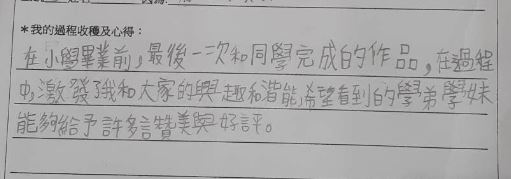 *我的過程收穫及心得：
在小學畢業前，最後一次和同學完成的作品，在過程
中，激發了我和大家的興趣和潛能，希望看到的學弟學妹
能夠給予許多言贊美與好評。